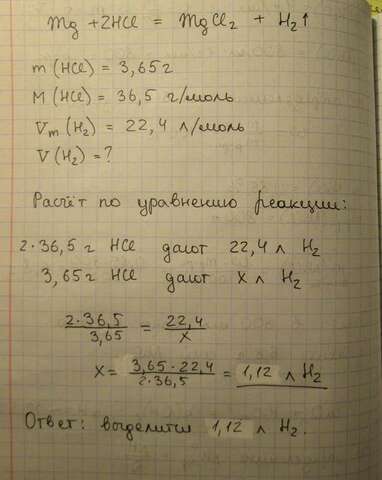 Mg + 2HCl = MgCl₂ + H₂↑
m (HCl) = 3,65 г
M (HCl) = 36,5 г/моль
Vm (H₂) = 22,4 л/моль
V (H₂) = ?
Расчёт по уравнению реакции:
2·36,5 г HCl дают 22,4 л H₂
3,65 г HCl дают x л H₂
2·36,5/3,65 = 22,4/x
x = 3,65·22,4/2·36,5 = 1,12 л H₂
Ответ: выделится 1,12 л H₂.